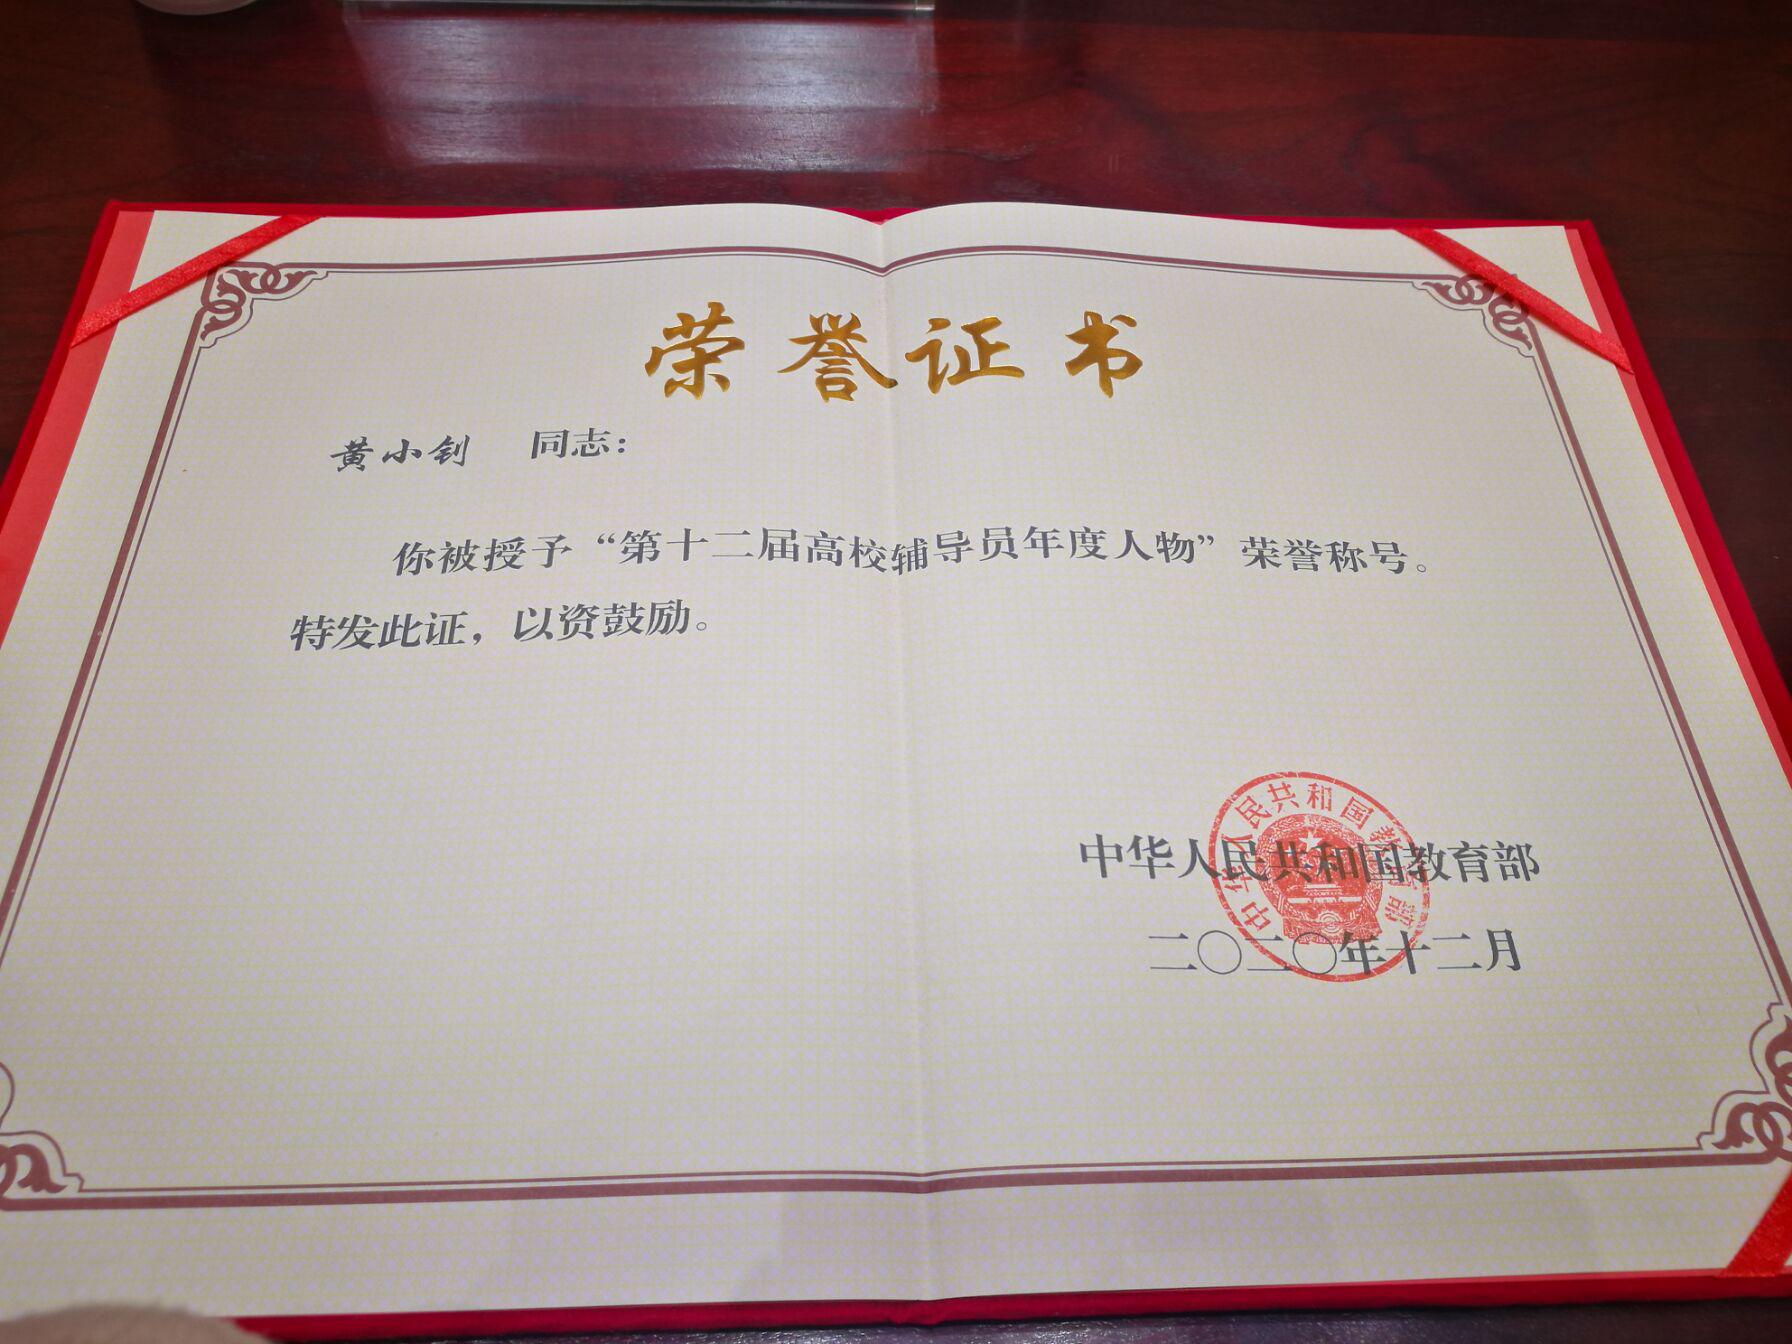 荣誉证书
黄小钊 同志：
你被授予“第十二届高校辅导员年度人物”荣誉称号。
特发此证，以资鼓励。
中华人民共和国教育部
中华人民共和国教育部
二〇二〇年十二月